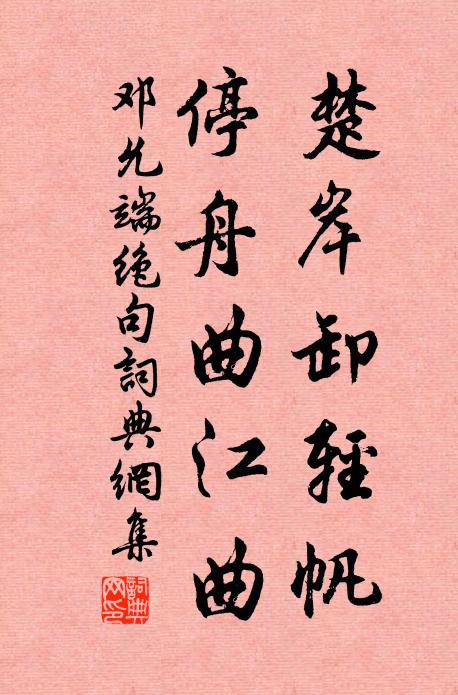 楚岸卸輕帆
停舟曲江曲
邓允端绝句詞典網集
詞典网印